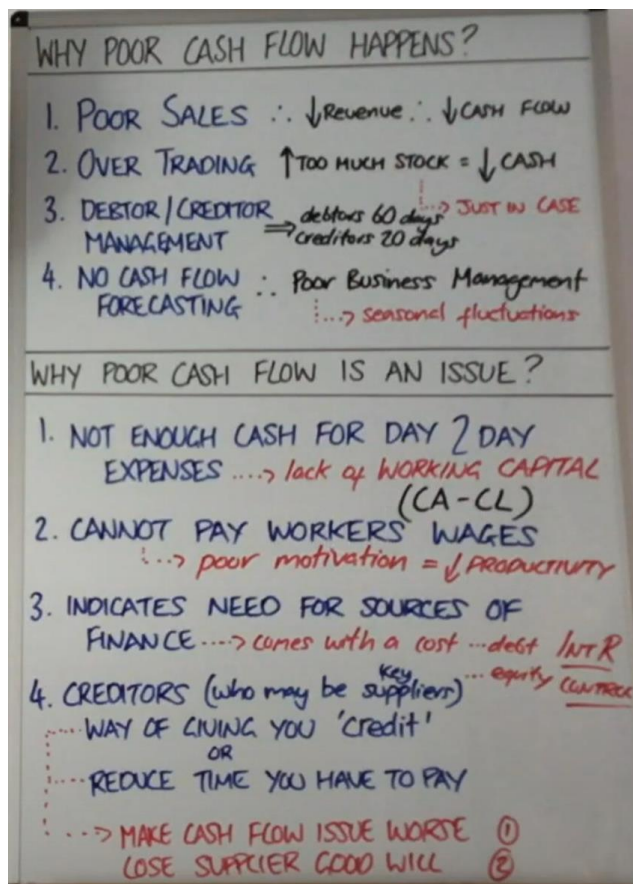 WHY POOR CASH FLOW HAPPENS?
1. POOR SALES ∴ ↓Revenue ∴ ↓CASH FLOW
2. OVER TRADING ↑TOO MUCH STOCK = ↓CASH
JUST IN CASE
3. DEBTOR/CREDITOR MANAGEMENT ⇒ debtors 60 days
creditors 20 days
4. NO CASH FLOW FORECASTING ∴ Poor Business Management
seasonal fluctuations
WHY POOR CASH FLOW IS AN ISSUE?
1. NOT ENOUGH CASH FOR DAY 2 DAY
EXPENSES ....> lack of WORKING CAPITAL
(CA-CL)
2. CANNOT PAY WORKERS' WAGES
...> poor motivation = ↓PRODUCTIVITY
3. INDICATES NEED FOR SOURCES OF
FINANCE ....> comes with a cost ...debt INT R
... equity CONTROL
4. CREDITORS (who may be key suppliers)
WAY OF GIVING YOU 'credit'
OR
REDUCE TIME YOU HAVE TO PAY
...> MAKE CASH FLOW ISSUE WORSE ①
LOSE SUPPLIER GOOD WILL ②